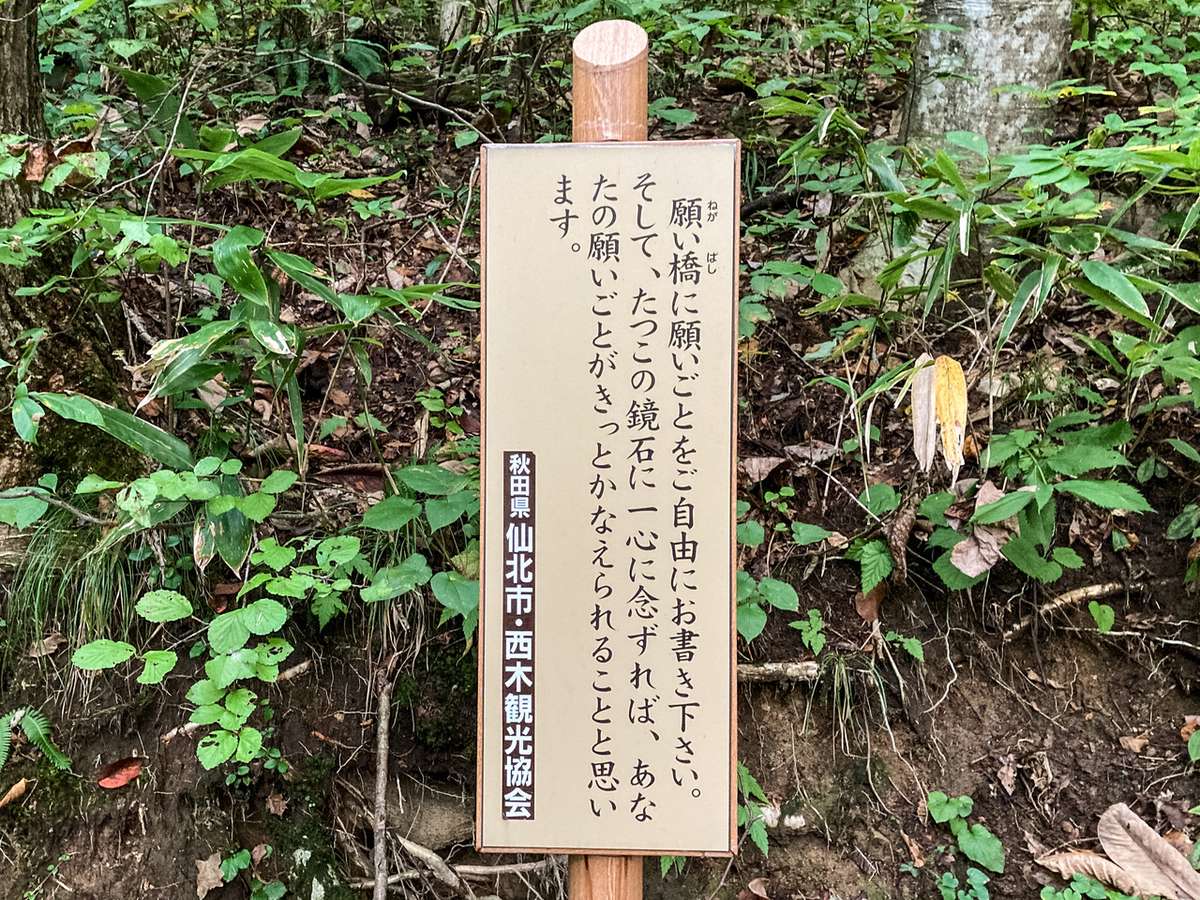 願い橋に願いごとをご自由にお書き下さい。
ねが ばし
そして、たつこの鏡石に一心に念ずれば、あな
たの願いごとがきっとかなえられることと思い
ます。
秋田県 仙北市・西木観光協会